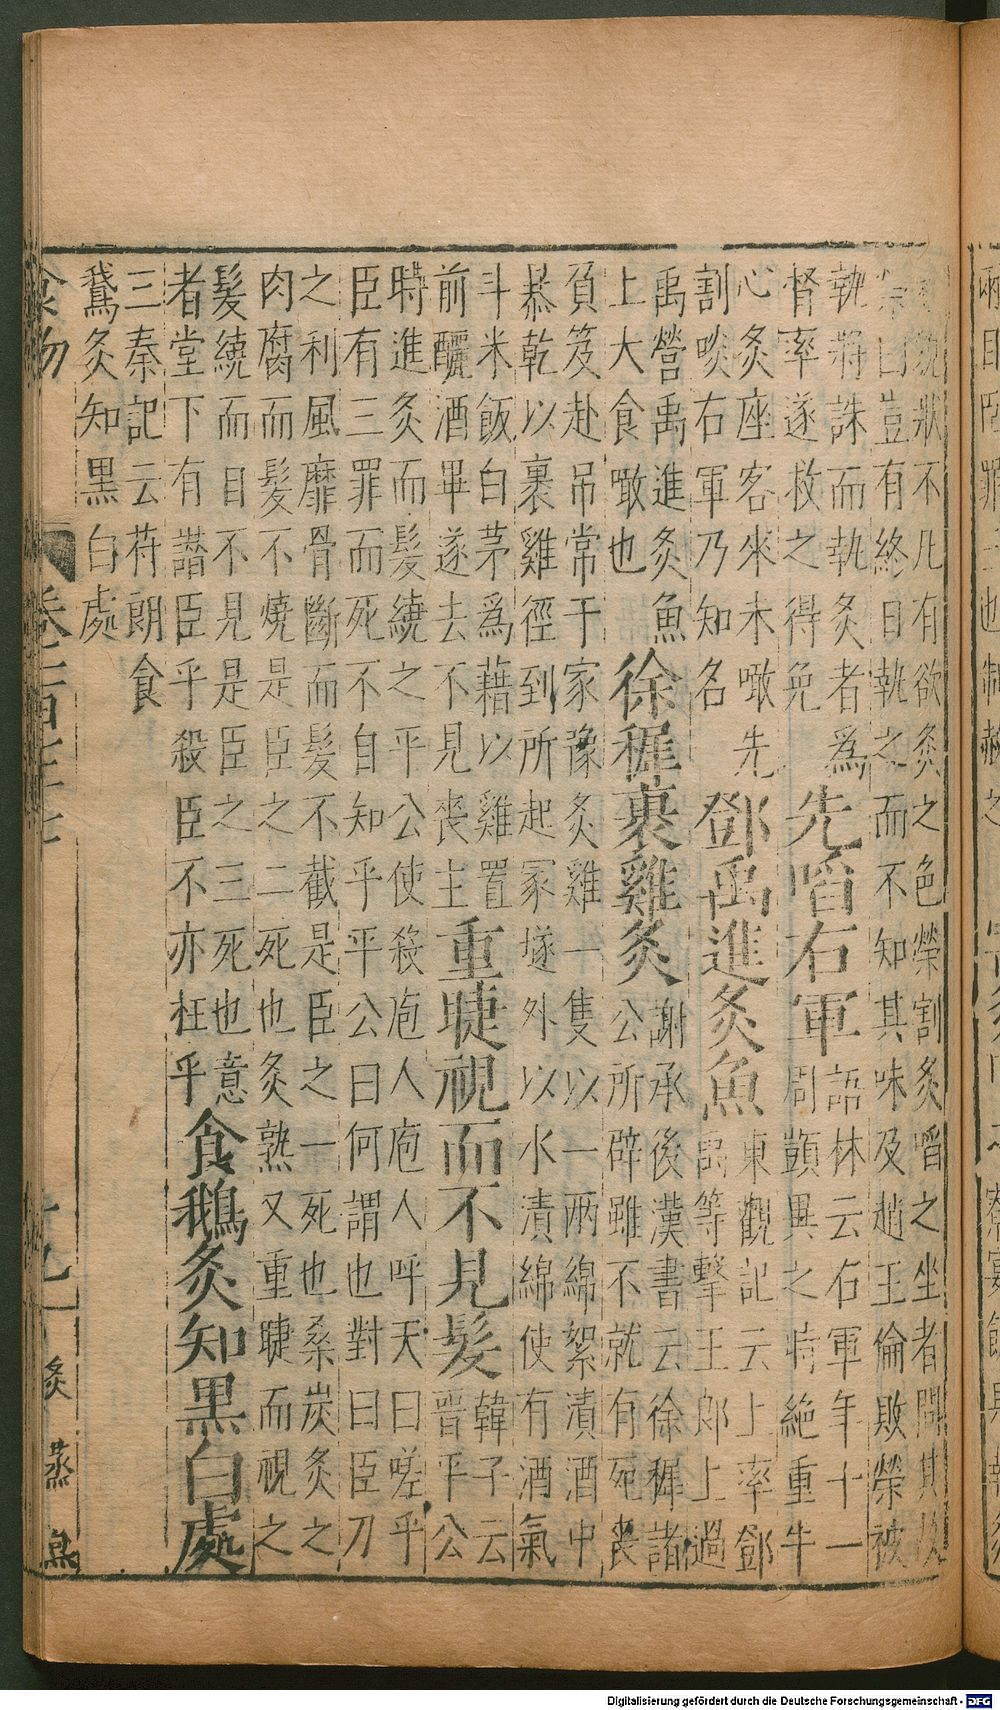 貌狀不凡有欲炙之色榮割炙啗之坐者問其故
榮曰豈有終日執之而不知其味及趙王倫敗榮被
執將誅而執炙者為
督率遂救之得免
先啗右軍
語林云右軍年十一
周顗異之時絶重牛
心炙座客來未噉先
割啖右軍乃知名
鄧禹進炙魚
東觀記云上率鄧
禹等擊王郎上過
禹營禹進炙魚
上大食噉也
徐穉裹雞炙
謝承後漢書云徐穉諸
公所辟雖不就有死喪
負笈赴吊常于家豫炙雞一隻以一两綿絮漬酒中
暴乾以裹雞徑到所起冢隧外以水漬綿使有酒氣
斗米飯白茅為藉以雞置
前釃酒畢遂去不見喪主
重睫視而不見髮
韓子云
晉平公
時進炙而髮繞之平公使殺庖人庖人呼天曰嗟乎
臣有三罪而死不自知乎平公曰何謂也對曰臣刀
之利風靡骨斷而髮不截是臣之一死也桑炭炙之
肉腐而髮不燒是臣之二死也炙熟又重睫而視之
髮繞而目不見是臣之三死也意
者堂下有譖臣乎殺臣不亦枉乎
食鵝炙知黑白處
三秦記云苻朗食
鵞炙知黑白處
食物
十九
炙 蒸 魚
Digitalisierung gefördert durch die Deutsche Forschungsgemeinschaft - DFG